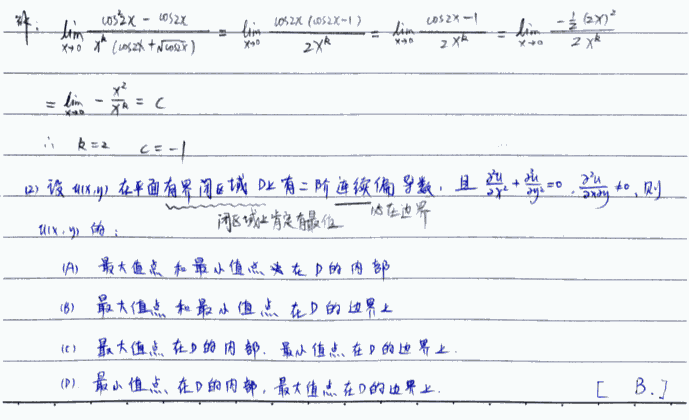 解: lim x→0 (cos²2x - cos2x) / (x^k (cos2x + √cos2x)) = lim x→0 cos2x (cos2x-1) / 2x^k = lim x→0 (cos2x-1) / 2x^k = lim x→0 -½(2x)² / 2x^k
= lim x→0 - x²/x^k = c
∴ k=2 c=-1
(2) 设 u(x,y) 在平面有界闭区域 D上有二阶连续偏导数, 且 ∂²u/∂x² + ∂²u/∂y² = 0, ∂²u/∂x∂y ≠0, 则
闭区域上肯定有最值 在边界
u(x,y) 的:
(A) 最大值点和最小值点 在D的内部
(B) 最大值点和最小值点在D的边界上
(C) 最大值点在D的内部, 最小值点在D的边界上.
(D) 最小值点在D的内部, 最大值点在D的边界上. [ B. ]